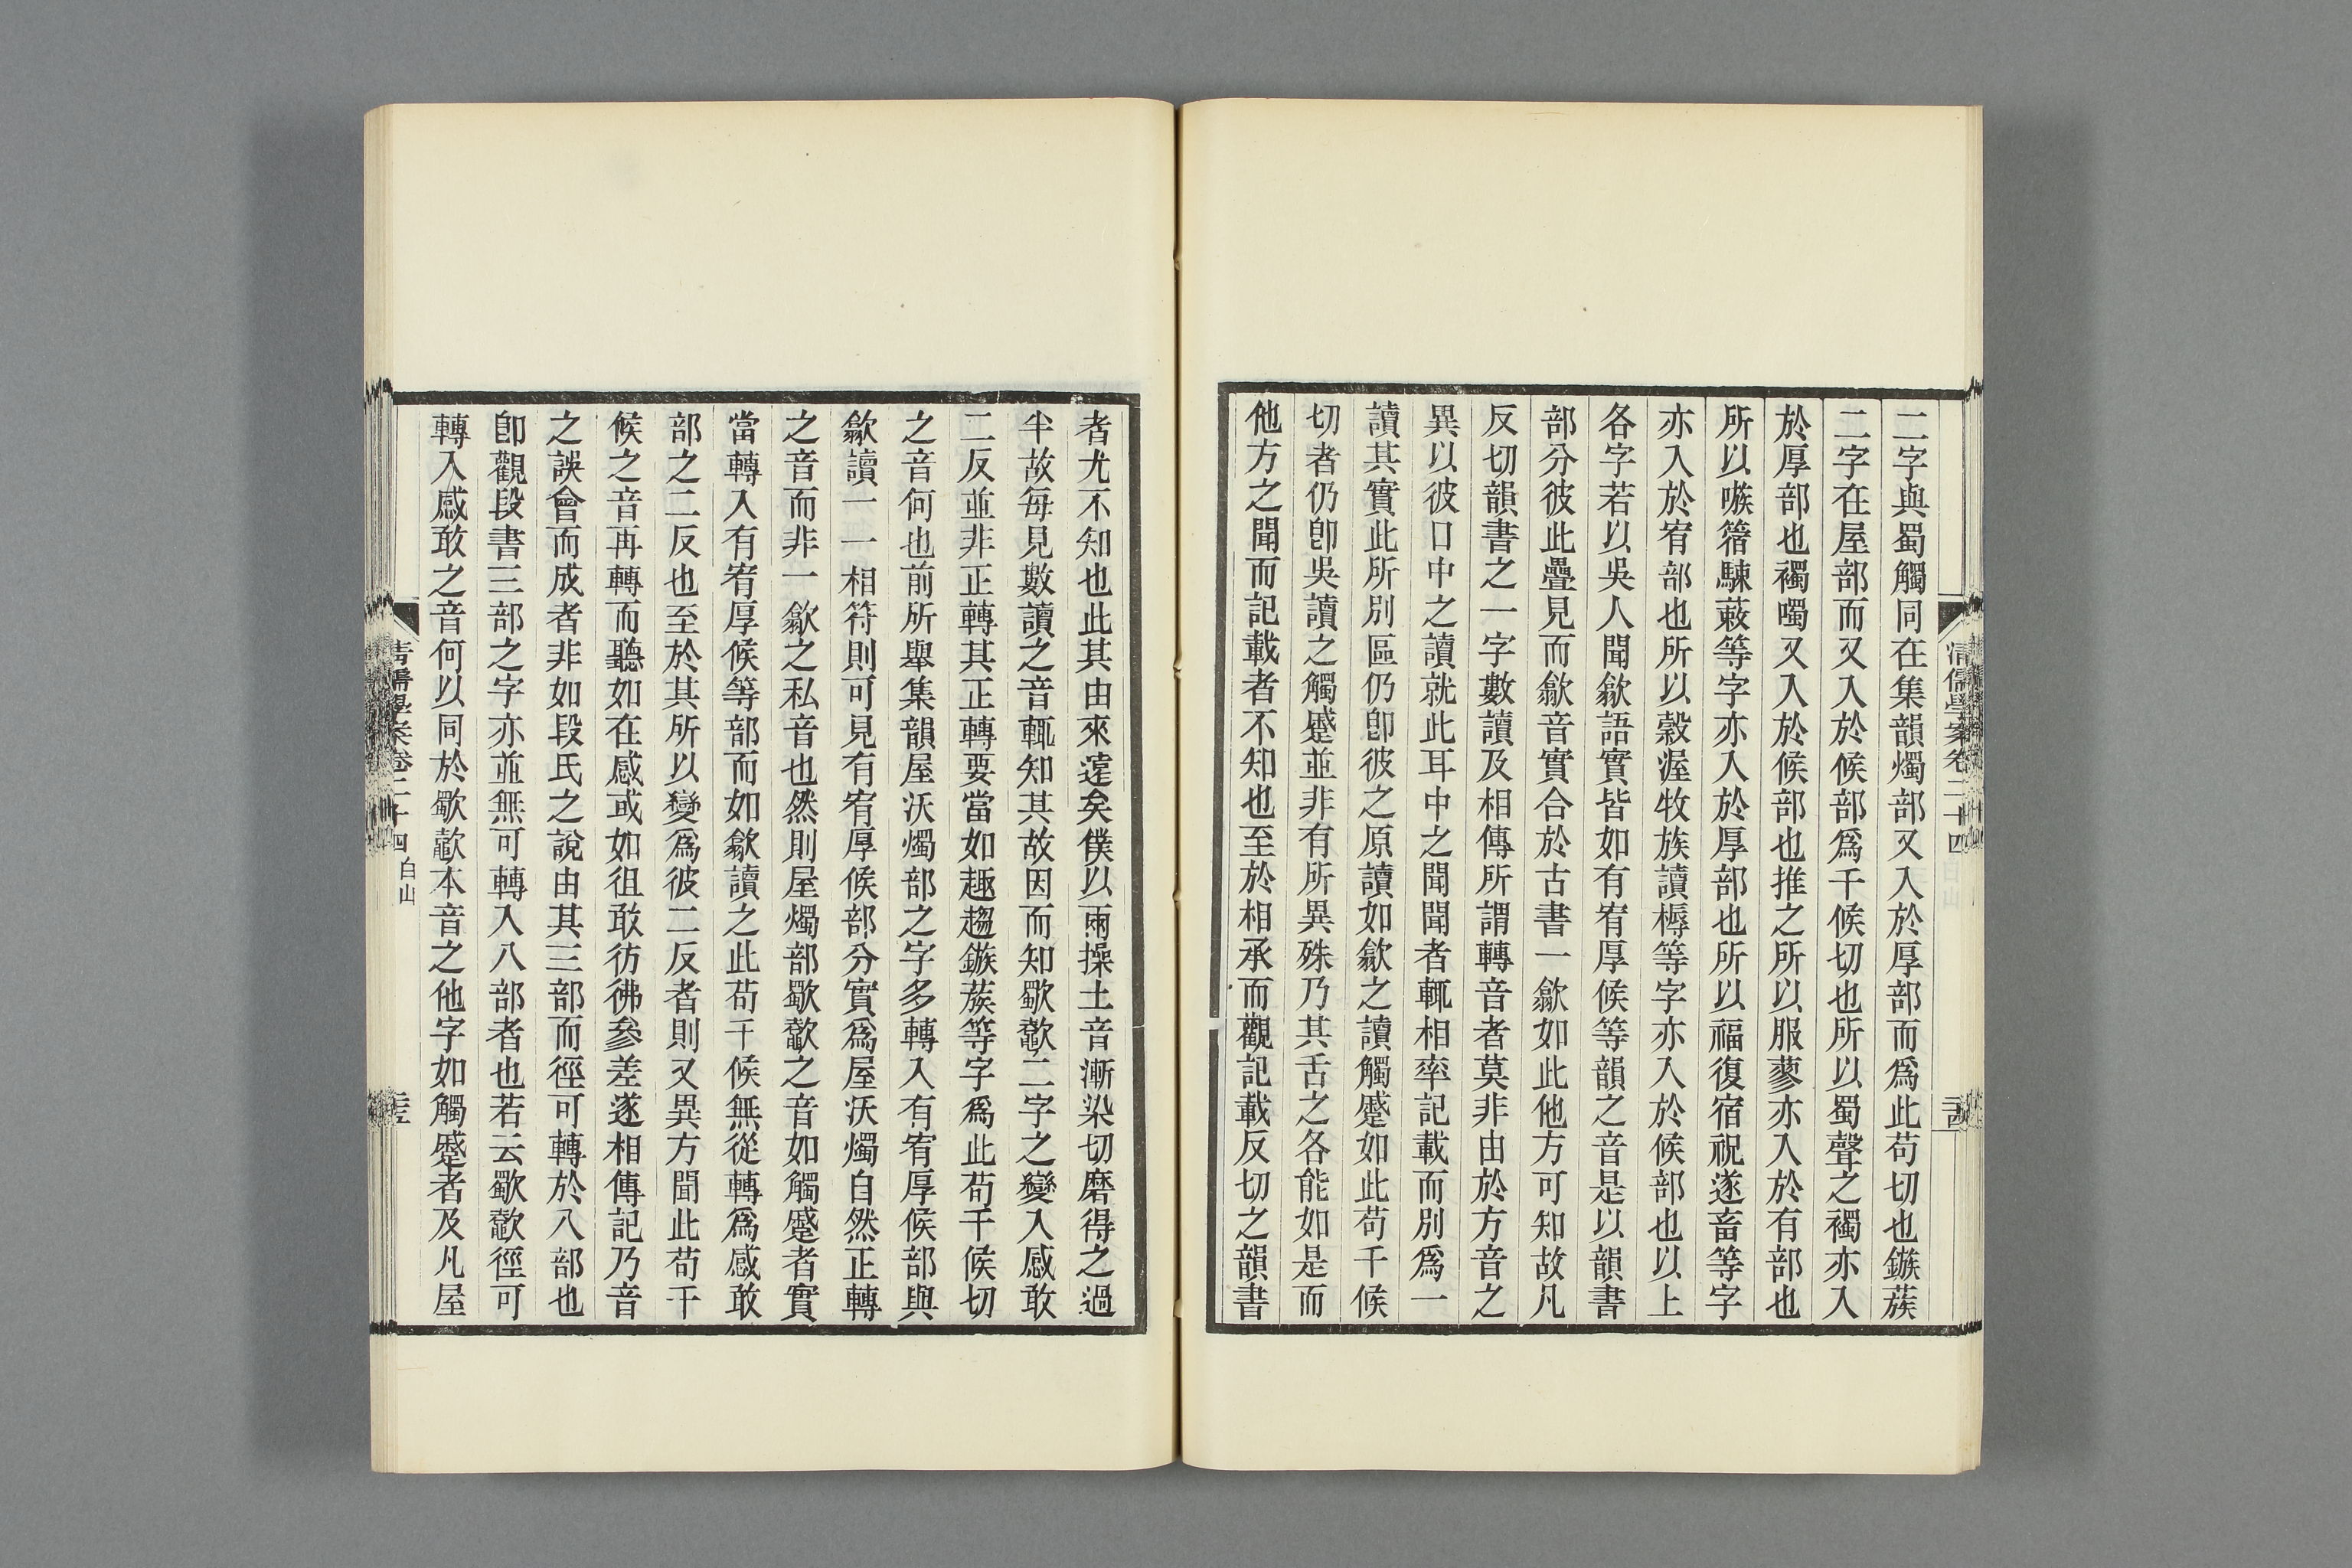 二字與蜀觸同在集韻燭部又入於厚部而爲此苟切也鏃蔟
二字在屋部而又入於候部爲千候切也所以蜀聲之襡亦入
於厚部也襡噣又入於候部也推之所以服蓼亦入於有部也
所以嗾簎駷蔌等字亦入於厚部也所以福復宿祝遂畜等字
亦入於宥部也所以縠渥牧族讀槈等字亦入於候部也以上
各字若以吳人聞歙語實皆如有宥厚候等韻之音是以韻書
部分彼此疊見而歙音實合於古書一歙如此他方可知故凡
反切韻書之一字數讀及相傳所謂轉音者莫非由於方音之
異以彼口中之讀就此耳中之聞聞者輒相率記載而別爲一
讀其實此所別區仍卽彼之原讀如歙之讀觸蹙如此苟千候
切者仍卽吳讀之觸蹙並非有所異殊乃其舌之各能如是而
他方之聞而記載者不知也至於相承而觀記載反切之韻書
清儒學案卷二十四
者尤不知也此其由來遠矣僕以兩操土音漸染切磨得之過
半故每見數讀之音輒知其故因而知歜歠二字之變入感敢
二反並非正轉其正轉要當如趣趨鏃蔟等字爲此苟千候切
之音何也前所舉集韻屋沃燭部之字多轉入有宥厚候部與
歙讀一一相符則可見有宥厚候部分實爲屋沃燭自然正轉
之音而非一歙之私音也然則屋燭部歜歠之音如觸蹙者實
當轉入有宥厚候等部而如歙讀之此苟千候無從轉爲感敢
部之二反也至於其所以變爲彼二反者則又異方聞此苟千
候之音再轉而聽如在感或如徂敢彷彿參差遂相傳記乃音
之誤會而成者非如段氏之說由其三部而徑可轉於八部也
卽觀段書三部之字亦並無可轉入八部者也若云歜歠徑可
轉入感敢之音何以同於歜歠本音之他字如觸蹙者及凡屋
清儒學案卷二十四 白山